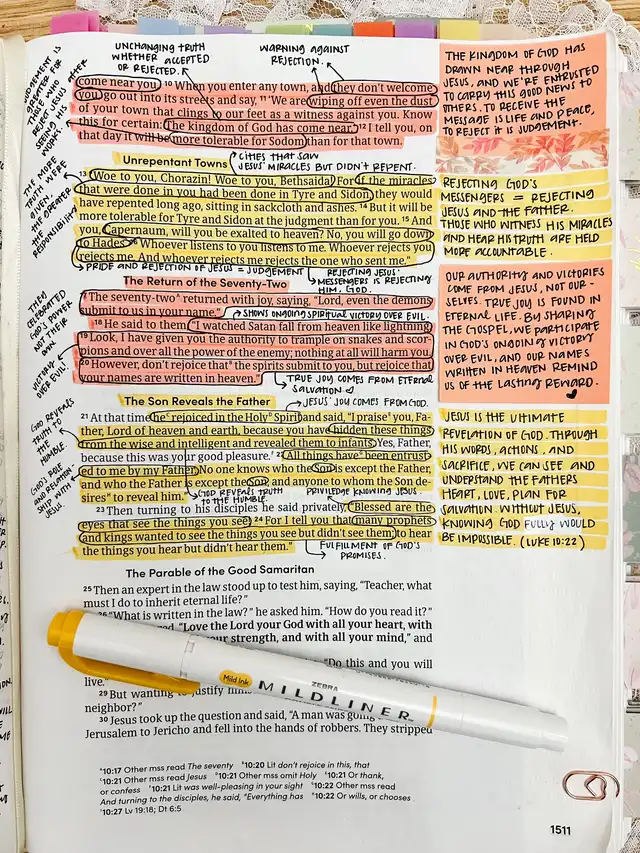 UNCHANGING TRUTH
WHETHER ACCEPTED
OR REJECTED.
WARNING AGAINST
REJECTION.
JUDGEMENT IS
GREATER FOR
THOSE WHO
REJECT JESUS AFTER
SEEING HIS
WORKS.
come near you.’ 10 When you enter any town, and they don’t welcome
you, go out into its streets and say, 11 ‘We are wiping off even the dust
of your town that clings to our feet as a witness against you. Know
this for certain: The kingdom of God has come near.’ 12 I tell you, on
that day it will be more tolerable for Sodom than for that town.
Unrepentant Towns
CITIES THAT SAW
JESUS' MIRACLES BUT DIDN'T REPENT.
THE MORE
TRUTH WERE
GIVEN,
THE GREATER
THE
RESPONSIBILITY
13 “Woe to you, Chorazin! Woe to you, Bethsaida! For if the miracles
that were done in you had been done in Tyre and Sidon, they would
have repented long ago, sitting in sackcloth and ashes. 14 But it will be
more tolerable for Tyre and Sidon at the judgment than for you. 15 And
you, Capernaum, will you be exalted to heaven? No, you will go down
to Hades. 16 Whoever listens to you listens to me. Whoever rejects you
rejects me. And whoever rejects me rejects the one who sent me.”
PRIDE AND REJECTION OF JESUS = JUDGEMENT
REJECTING JESUS'
MESSENGERS IS REJECTING
HIM, GOD.
The Return of the Seventy-Two
THEY
CELEBRATED
GOD'S POWER
NOT THEIR
OWN
17 The seventy-two A returned with joy, saying, “Lord, even the demons
submit to us in your name.”
SHOWS ONGOING SPIRITUAL VICTORY OVER EVIL.
18 He said to them, “I watched Satan fall from heaven like lightning.
19 Look, I have given you the authority to trample on snakes and scor-
pions and over all the power of the enemy; nothing at all will harm you.
20 However, don’t rejoice that B the spirits submit to you, but rejoice that
your names are written in heaven.”
VICTORY
OVER EVIL.
TRUE JOY COMES FROM ETERNAL
SALVATION
The Son Reveals the Father
JESUS' JOY COMES FROM GOD.
GOD REVEALS
TRUTH TO
THE
HUMBLE.
21 At that time he C rejoiced in the Holy D Spirit and said, “I praise E you, Fa-
ther, Lord of heaven and earth, because you have hidden these things
from the wise and intelligent and revealed them to infants. Yes, Father,
because this was your good pleasure. F 22 All things have G been entrust-
ed to me by my Father. No one knows who the Son is except the Father,
and who the Father is except the Son, and anyone to whom the Son de-
sires H to reveal him.”
GOD REVEALS TRUTH
TO THE HUMBLE.
PRIVILEDGE KNOWING JESUS.
23 Then turning to his disciples he said privately, “Blessed are the
eyes that see the things you see! 24 For I tell you that many prophets
and kings wanted to see the things you see but didn’t see them; to hear
the things you hear but didn’t hear them.”
FULFILLMENT OF GOD'S
PROMISES.
The Parable of the Good Samaritan
25 Then an expert in the law stood up to test him, saying, “Teacher, what
must I do to inherit eternal life?”
26 “What is written in the law?” he asked him. “How do you read it?”
“Love the Lord your God with all your heart, with
your strength, and with all your mind,” and
“Do this and you will
live.”
29 But wanting to justify
neighbor?”
30 Jesus took up the question and said, “A man was going
Jerusalem to Jericho and fell into the hands of robbers. They stripped
A 10:17 Other mss read The seventy B 10:20 Lit don’t rejoice in this, that
C 10:21 Other mss read Jesus D 10:21 Other mss omit Holy E 10:21 Or thank,
or confess F 10:21 Lit was well-pleasing in your sight G 10:22 Other mss read
And turning to the disciples, he said, “Everything has H 10:22 Or wills, or chooses
I 10:27 Lv 19:18; Dt 6:5
1511
THE KINGDOM OF GOD HAS
DRAWN NEAR THROUGH
JESUS, AND WE'RE ENTRUSTED
TO CARRY THIS GOOD NEWS TO
OTHERS. TO RECEIVE THE
MESSAGE IS LIFE AND PEACE,
TO REJECT IT IS JUDGEMENT.
REJECTING GOD'S
MESSENGERS = REJECTING
JESUS AND THE FATHER.
THOSE WHO WITNESS HIS MIRACLES
AND HEAR HIS TRUTH ARE HELD
MORE ACCOUNTABLE.
OUR AUTHORITY AND VICTORIES
COME FROM JESUS, NOT OUR-
SELVES. TRUE JOY IS FOUND IN
ETERNAL LIFE. BY SHARING
THE GOSPEL, WE PARTICIPATE
IN GOD'S ONGOING VICTORY
OVER EVIL, AND OUR NAMES
WRITTEN IN HEAVEN REMIND
US OF THE LASTING REWARD.
JESUS IS THE ULTIMATE
REVELATION OF GOD. THROUGH
HIS WORDS, ACTIONS, AND
SACRIFICE, WE CAN SEE AND
UNDERSTAND THE FATHERS
HEART, LOVE, PLAN FOR
SALVATION. WITHOUT JESUS,
KNOWING GOD FULLY WOULD
BE IMPOSSIBLE. (LUKE 10:22)
Mild Ink
ZEBRA
MILDLINER